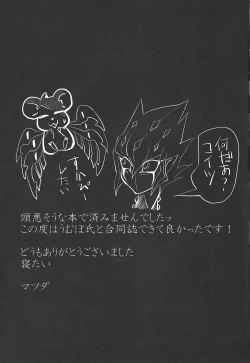 何だぁ?
コイツ
すかぴー
したい
頭悪そうな本で済みませんでしたッ
この度はうむぼ氏と合同誌できて良かったです!
どうもありがとうございました
寝たい
マツダ